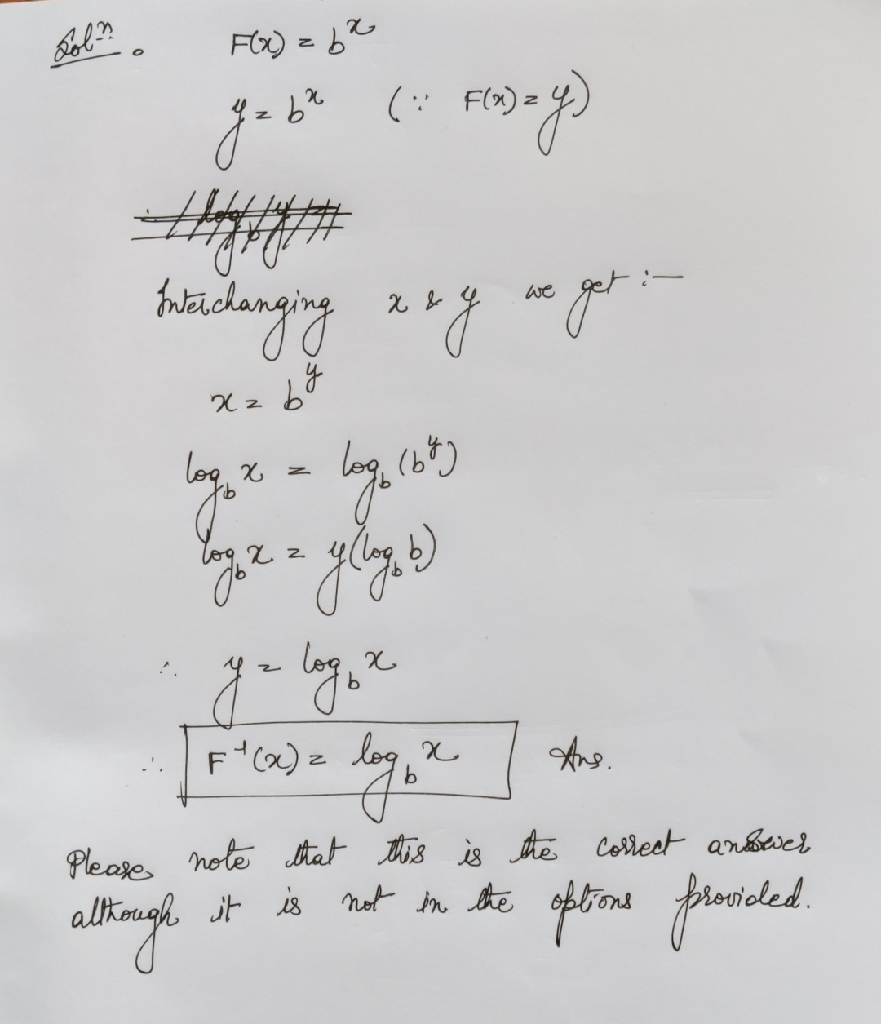 Solⁿ. F(x) = bˣ
y = bˣ (∵ F(x) = y)
Interchanging x & y we get :-
x = b^y
log_b x = log_b (b^y)
log_b x = y(log_b b)
∴ y = log_b x
∴ F⁻¹(x) = log_b x Ans.
Please note that this is the correct answer
although it is not in the options provided.